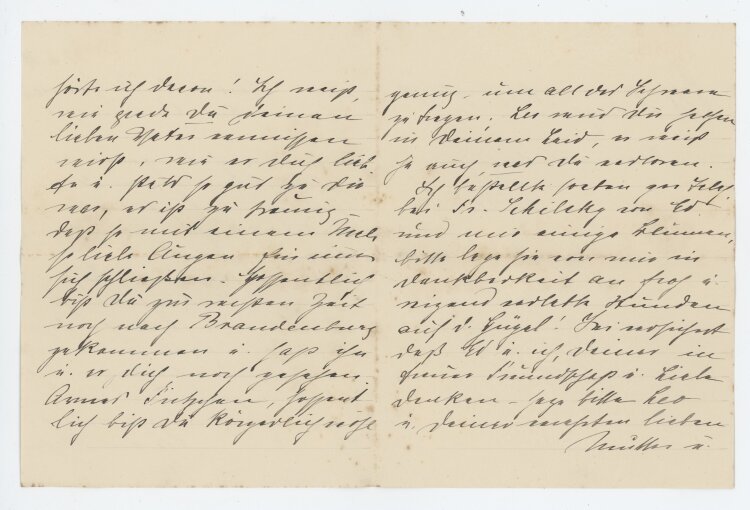 hörte ich davon! Ich weiß,
wie grade Du Deinen
lieben Vater vermissen
wirst, wie er Dich lieb
te u. stets so gut zu Dir
war, es ist zu traurig
daß so mit einem Male
so liebe Augen für immer
sich schließen. Hoffentlich
bist Du zur rechten Zeit
noch nach Brandenburg
gekommen u. hast ihn
u. er Dich noch gesehen.
Armes Fritzchen, hoffent
lich bist Du körperlich wohl
genug, um all das Schwere
zu tragen. Leo wird Dir helfen
in Deinem Leid, er weiß
ja auch, was Du verloren.
Ich bestellte soeben per Tel.
bei Fr. Schilsky von Ed.
und mir einige Blumen,
bitte lege sie von mir in
Dankbarkeit an froh u.
verlebte Stunden
auf d. Hügel! Sei versichert
daß Ed u. ich, Deiner in
treuer Freundschaft u. Liebe
denken – sage bitte Leo
u. Deiner verehrten lieben
Mutter u.